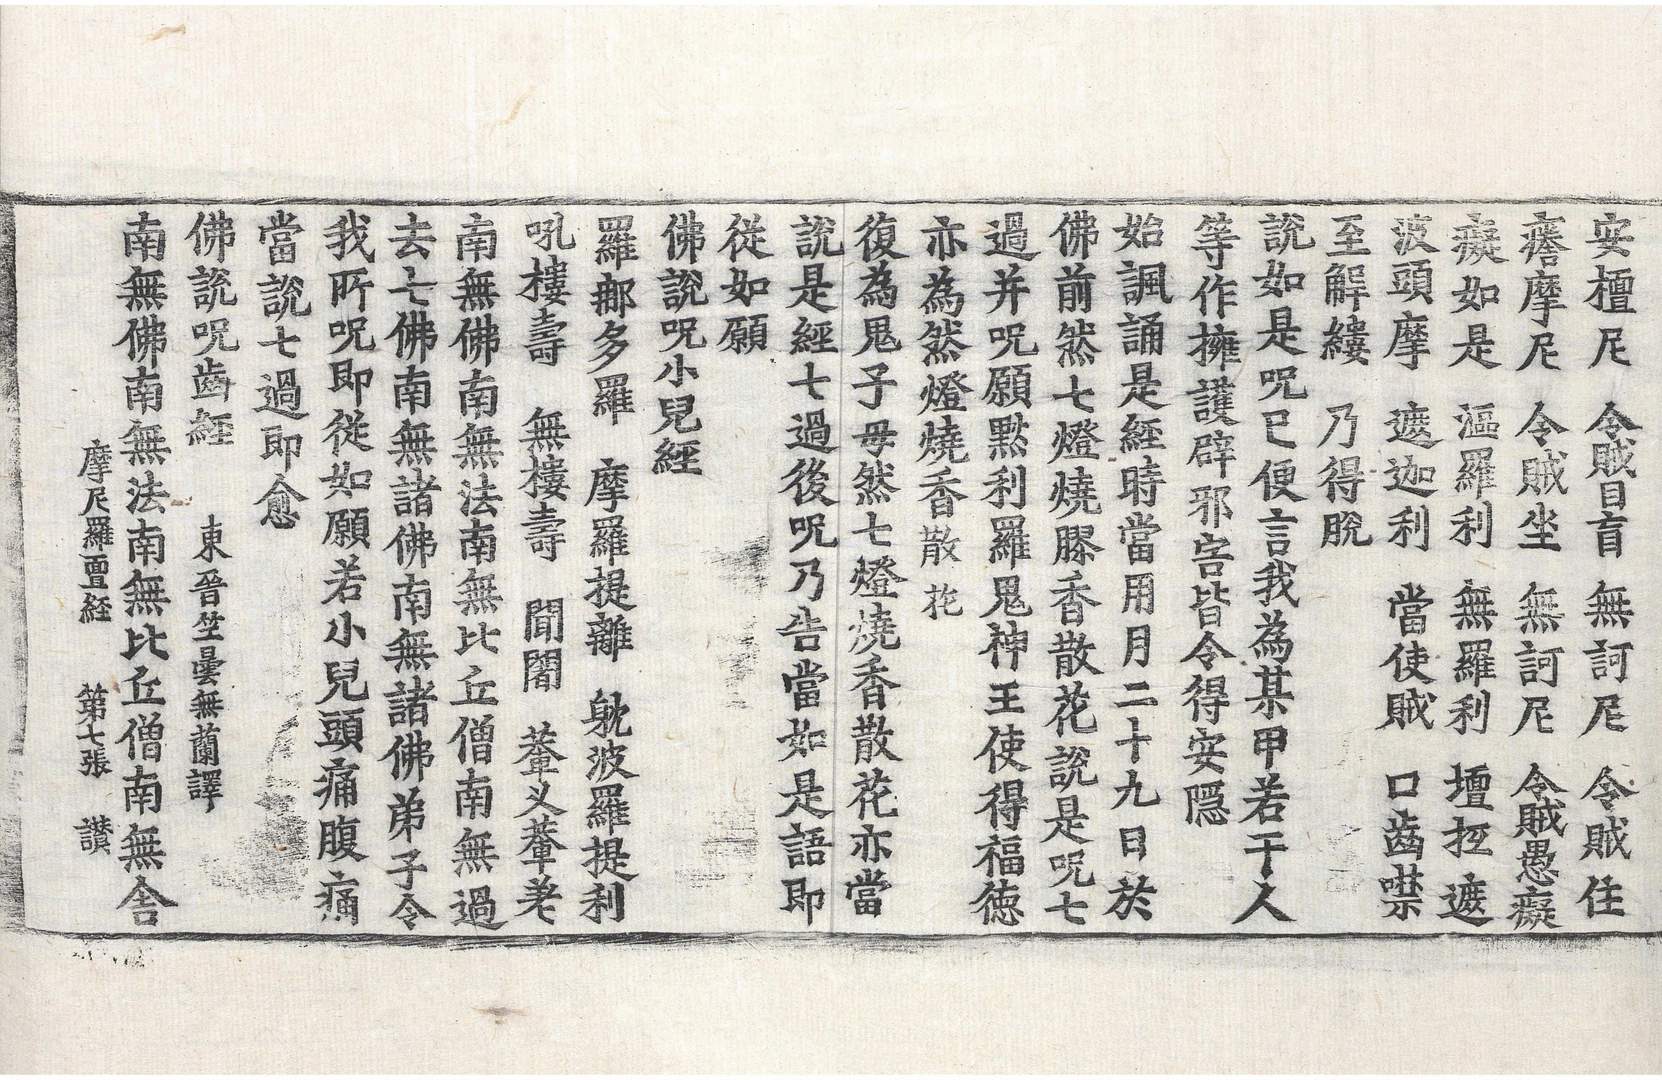 安檀尼　令賊目盲　無訶尼　令賊住
㾭摩尼　令賊坐　無訶尼　令賊愚癡
癡如是　漚羅利　無羅利　壇抂遮
波頭摩　遮迦利　當使賊　口齒噤
至解縷　乃得脫
說如是呪已便言我為某甲若干人
等作擁護辟邪害皆令得安隱
始諷誦是經時當用月二十九日於
佛前然七燈燒膠香散花說是呪七
過并呪願黙利羅鬼神王使得福德
亦為然燈燒香散花
復為鬼子母然七燈燒香散花亦當
說是經七過後呪乃告當如是語即
從如願
佛說呪小兒經
羅那多羅　摩羅提離　躭波羅提利
吼樓壽　無樓壽　聞闍　葦义葦茖
南無佛南無法南無比丘僧南無過
去七佛南無諸佛南無諸佛弟子令
我所呪即從如願若小兒頭痛腹痛
當說七過即愈
佛說呪齒經　東晉竺曇無蘭譯
南無佛南無法南無比丘僧南無舍
摩尼羅亶経　第七張　讃